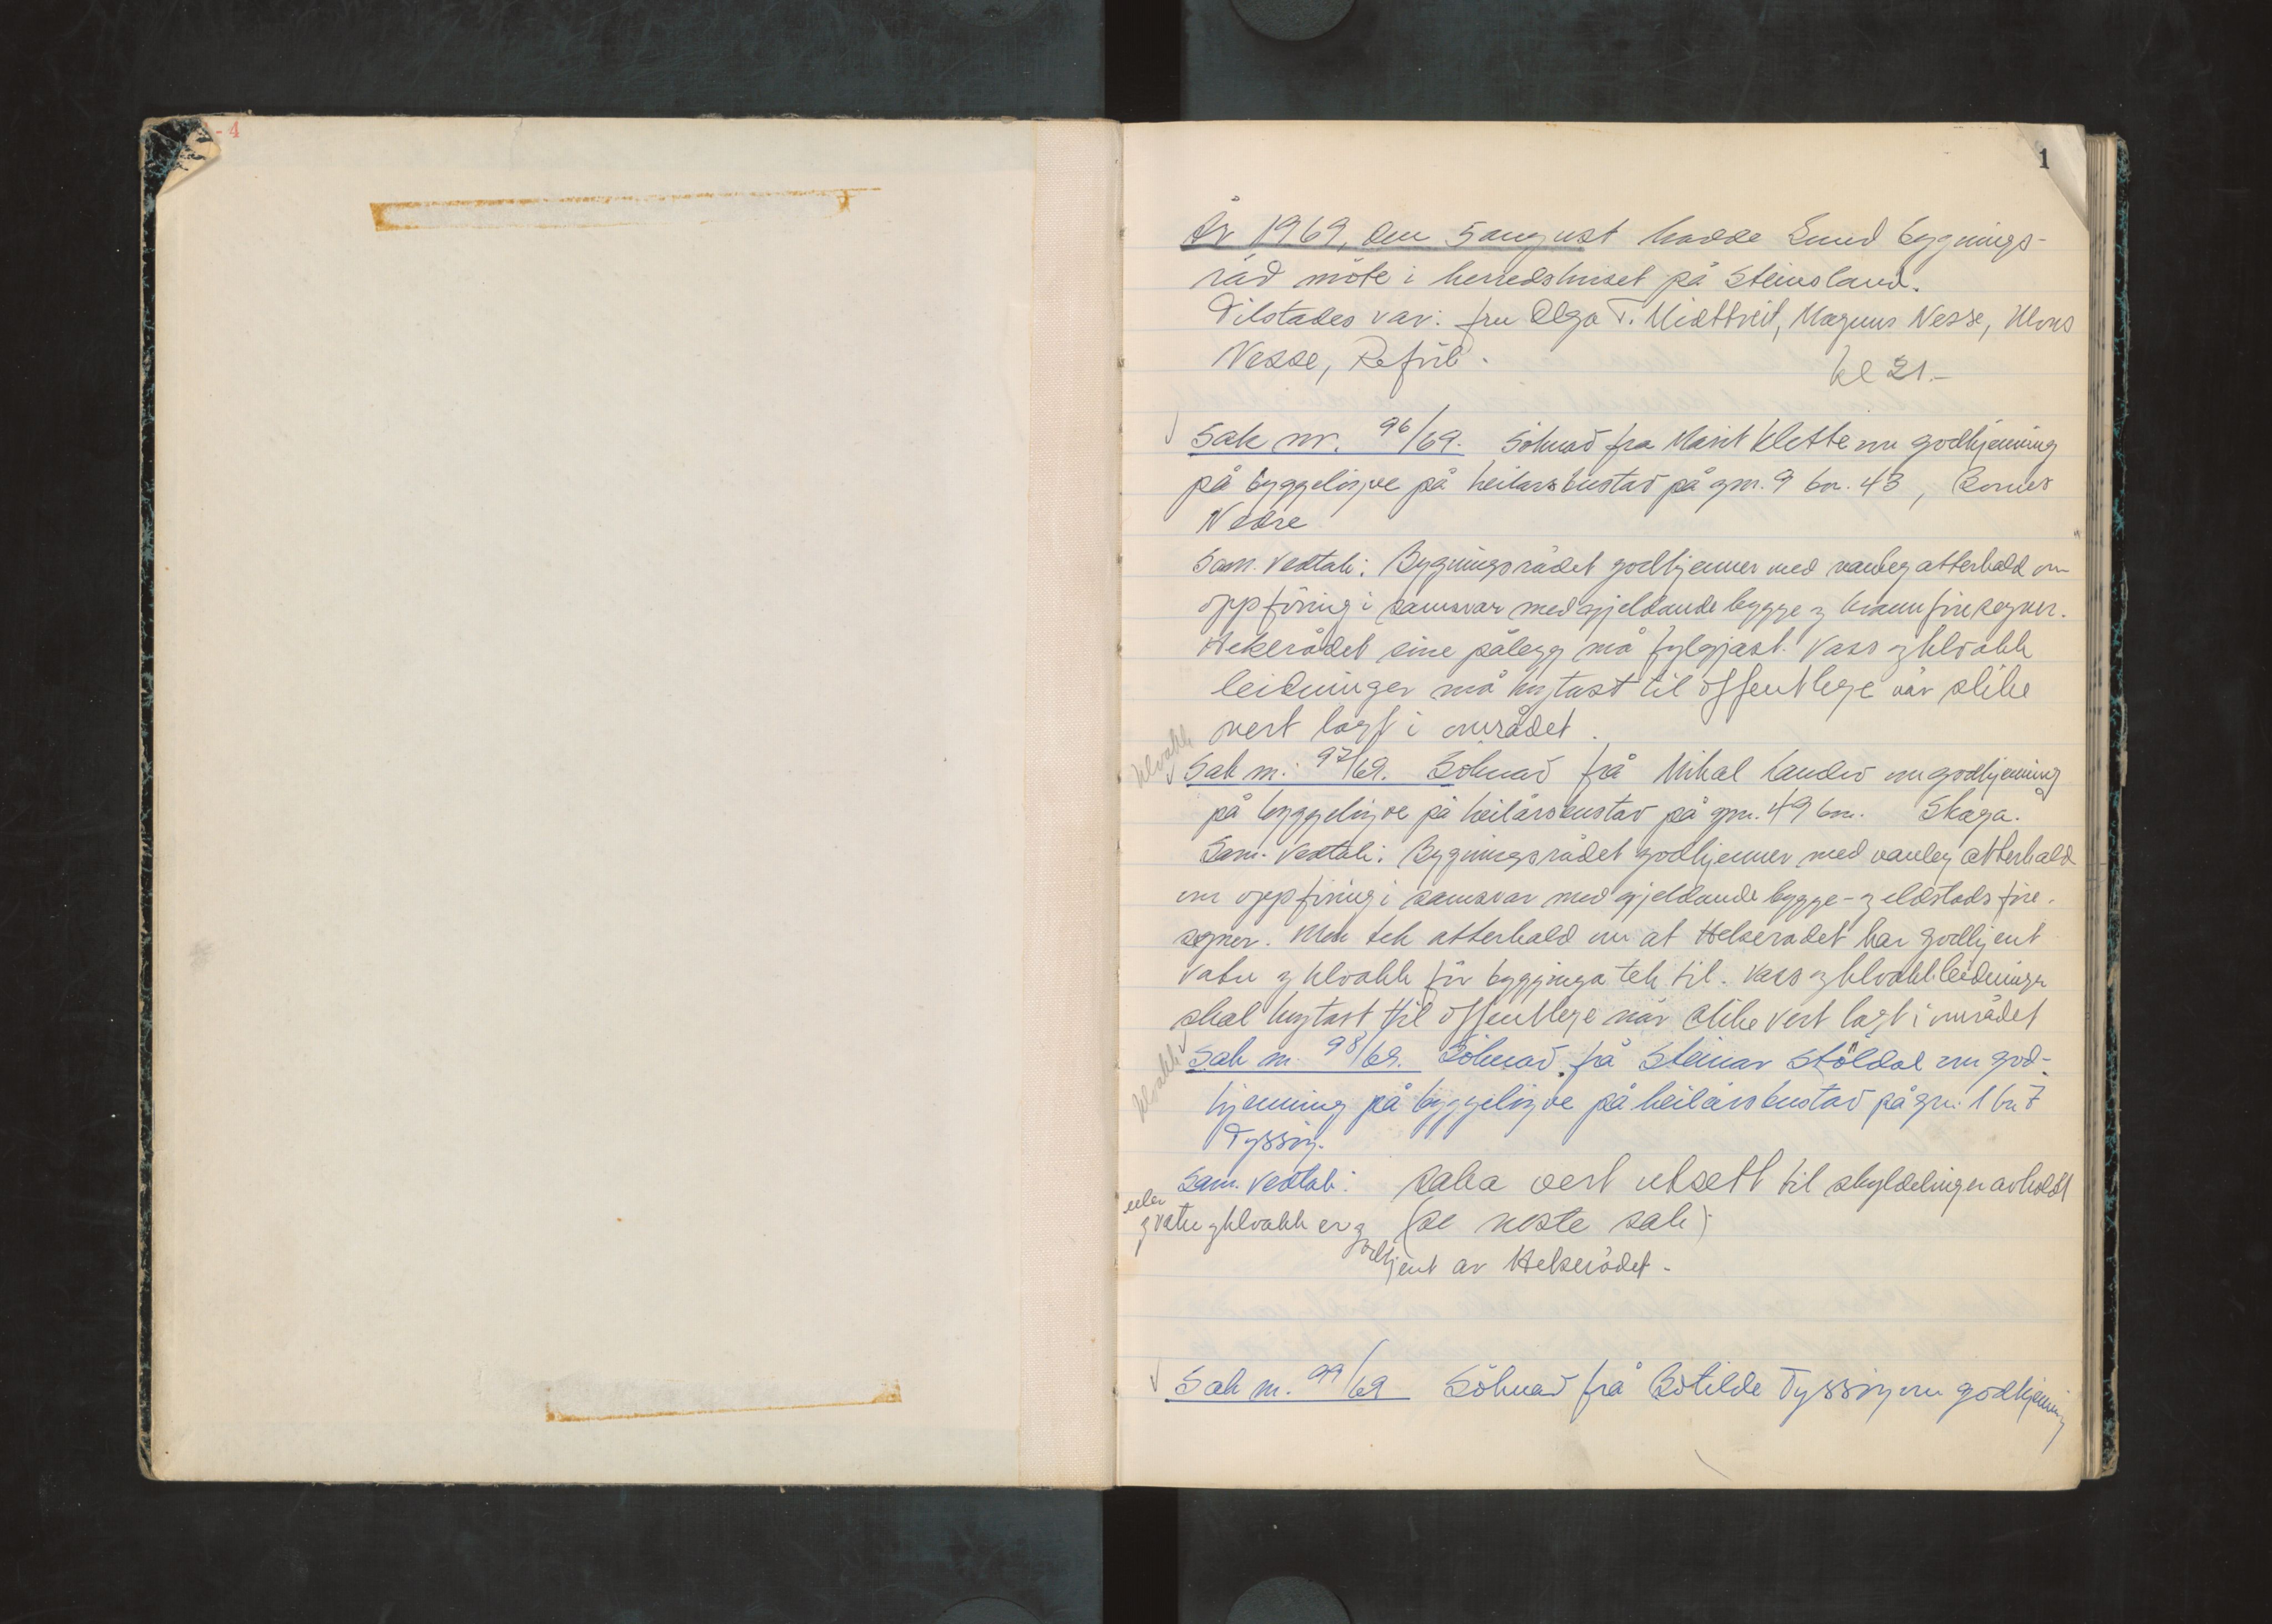 - 4
1
År 1969, den 5 august hadde Sund bygnings-
råd möte i herredshuset på Steinsland.
Tilstades var: fru Olga T. Midttveit, Magnus Nesse, Mons
Nesse,
kl 21.-
Sak nr. 96/69. Söknad fra Marit Klette om godkjenning
på byggelöyve på heilårsbustad på gnr. 9 bn. 43,
Nedre
Sam. vedtak: Bygningsrådet godkjenner med vanleg atterhald om
oppföring i samsvar med gjeldande bygge og brannföresegner.
Helserådet sine pålegg må fylgjast. Vass og kloakk
leidninger må knytast til offentlege når slike
vert lagt i området.
kloakk
Sak nr. 97/69. Söknad frå Mikal om godkjenning
på byggelöyve på heilårsbustad på gnr. 49 bn. Skaga.
Sam. vedtak: Bygningsrådet godkjenner med vanleg atterhald
om oppföring i samsvar med gjeldande bygge- og eldstadsföre-
segner. Men tek atterhald om at Helserådet har godkjent
vatn og kloakk för bygginga tek til. Vass og kloakkleidninger
skal knytast til offentlege når slike vert lagt i området
kloakk
Sak nr. 98/69. Söknad frå Steinar Stöldal om god-
kjenning på byggelöyve på heilårsbustad på gnr. 1 bn 7
Tyssöy.
Sam. vedtak: Saka vert utsett til skyldelinga er avholdt
og vatn og kloakk er (se neste sak)
godkjent av Helserådet.
Sak nr. 99/69 Söknad frå Botilde Tyssöy om godkjenning